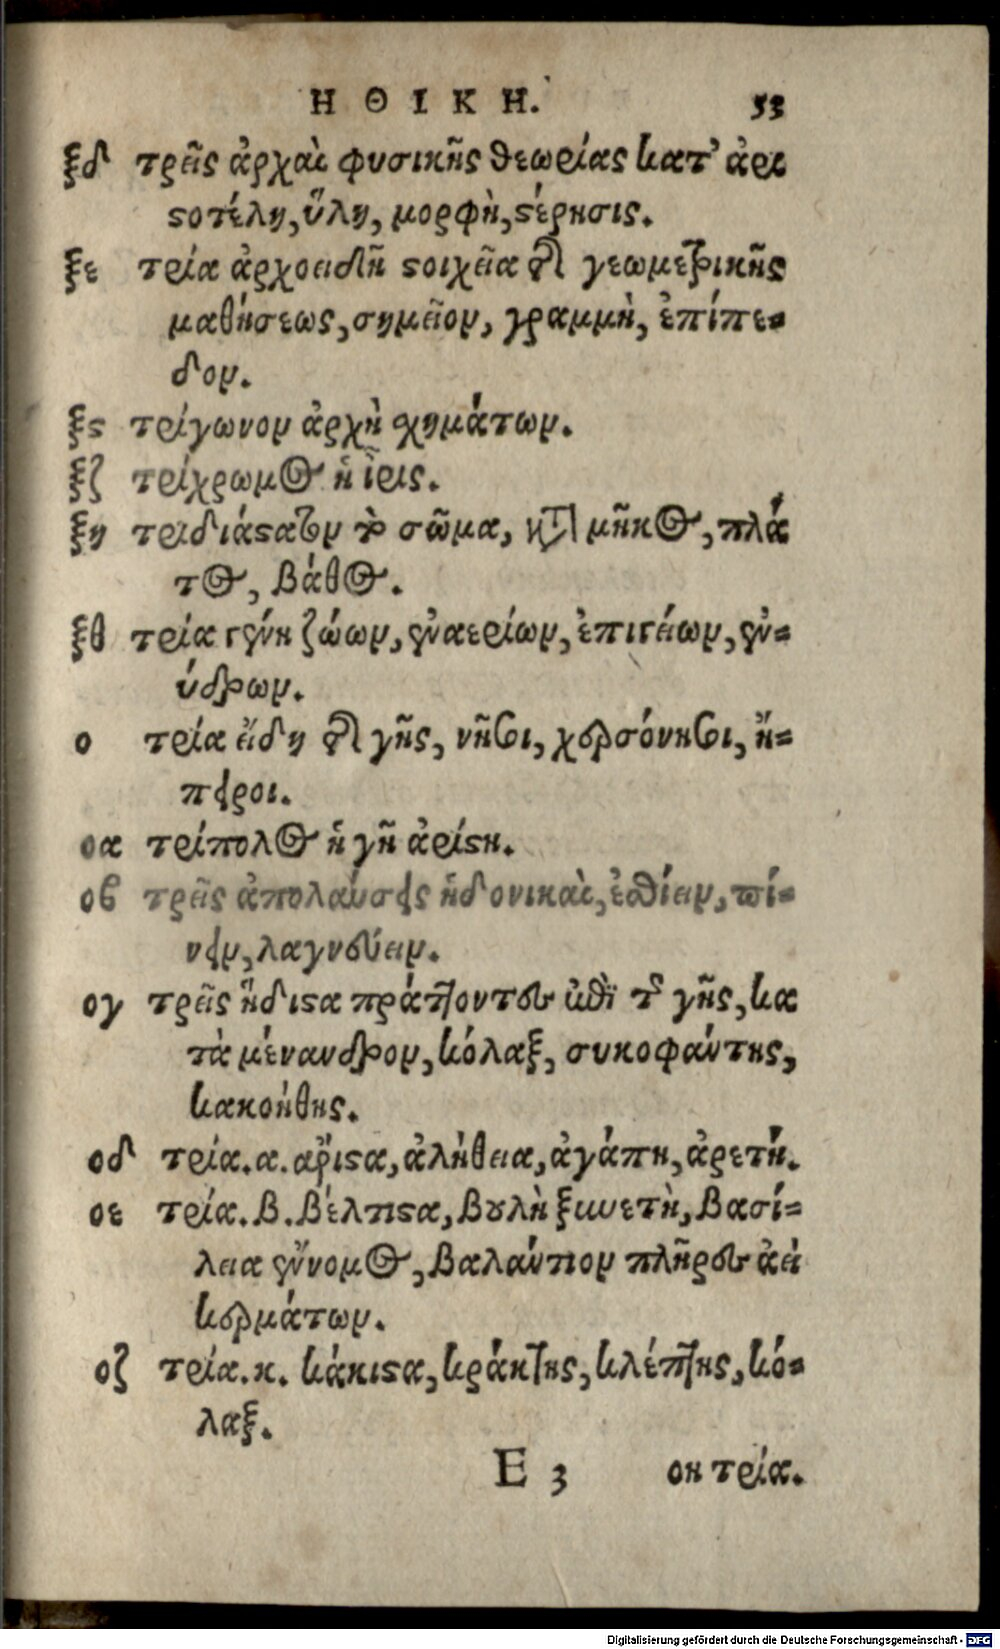 ΗΘΙΚΗ. 53
ξδ τρεῖς ἀρχαὶ φυσικῆς θεωρίας κατ' ἀρι
ϛοτέλη, ὕλη, μορφὴ, ϛέρησις.
ξε τρία ἀρχοειδῆ ϛοιχεῖα τῆς γεωμετρικῆς
μαθήσεως, σημεῖον, γραμμὴ, ἐπίπε-
δον.
ξϛ τρίγωνον ἀρχὴ σχημάτων.
ξζ τρίχρωμος ἡ ἶρις.
ξη τριδιάϛατον τὸ σῶμα, κατὰ μῆκος, πλά
τος, βάθος.
ξθ τρία γένη ζώων, ἐναερίων, ἐπιγείων, ἐν-
ύδρων.
ο τρία εἴδη τῆς γῆς, νῆσοι, χερσόνησοι, ἤ-
πειροι.
οα τρίπολος ἡ γῆ ἀρίϛη.
οβ τρεῖς ἀπολαύσεις ἡδονικαὶ, ἐσθίειν, πί-
νειν, λαγνεύειν.
ογ τρεῖς ἥδιϛα πράττοντες ἐπὶ τῆς γῆς, κα
τὰ μένανδρον, κόλαξ, συκοφάντης,
κακοήθης.
οδ τρία. α. ἄριϛα, ἀλήθεια, ἀγάπη, ἀρετή.
οε τρία. β. βέλτιϛα, βουλὴ ξυνετὴ, βασί-
λεια ἔννομος, βαλάντιον πλῆρες ἀεὶ
κερμάτων.
οζ τρία. κ. κάκιϛα, κράκτης, κλέπτης, κό-
λαξ.
E 3 οη τρία.
Digitalisierung gefördert durch die Deutsche Forschungsgemeinschaft - DFG